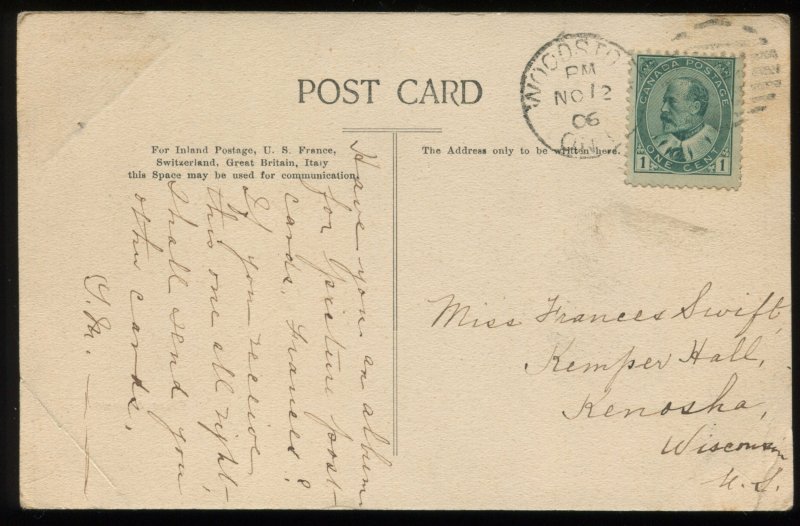 POST CARD
For Inland Postage, U. S. France,
Switzerland, Great Britain, Italy
this Space may be used for communication.
The Address only to be written here.
WOODSTO
PM
NO 12
06
CANADA POSTAGE
ONE CENT
1 1
Have you an album
for picture post-
cards, Frances?
If you receive
this one all right,
I shall send you
other cards.
Miss Frances Swift,
Kemper Hall,
Kenosha,
Wisconsin
U.S.